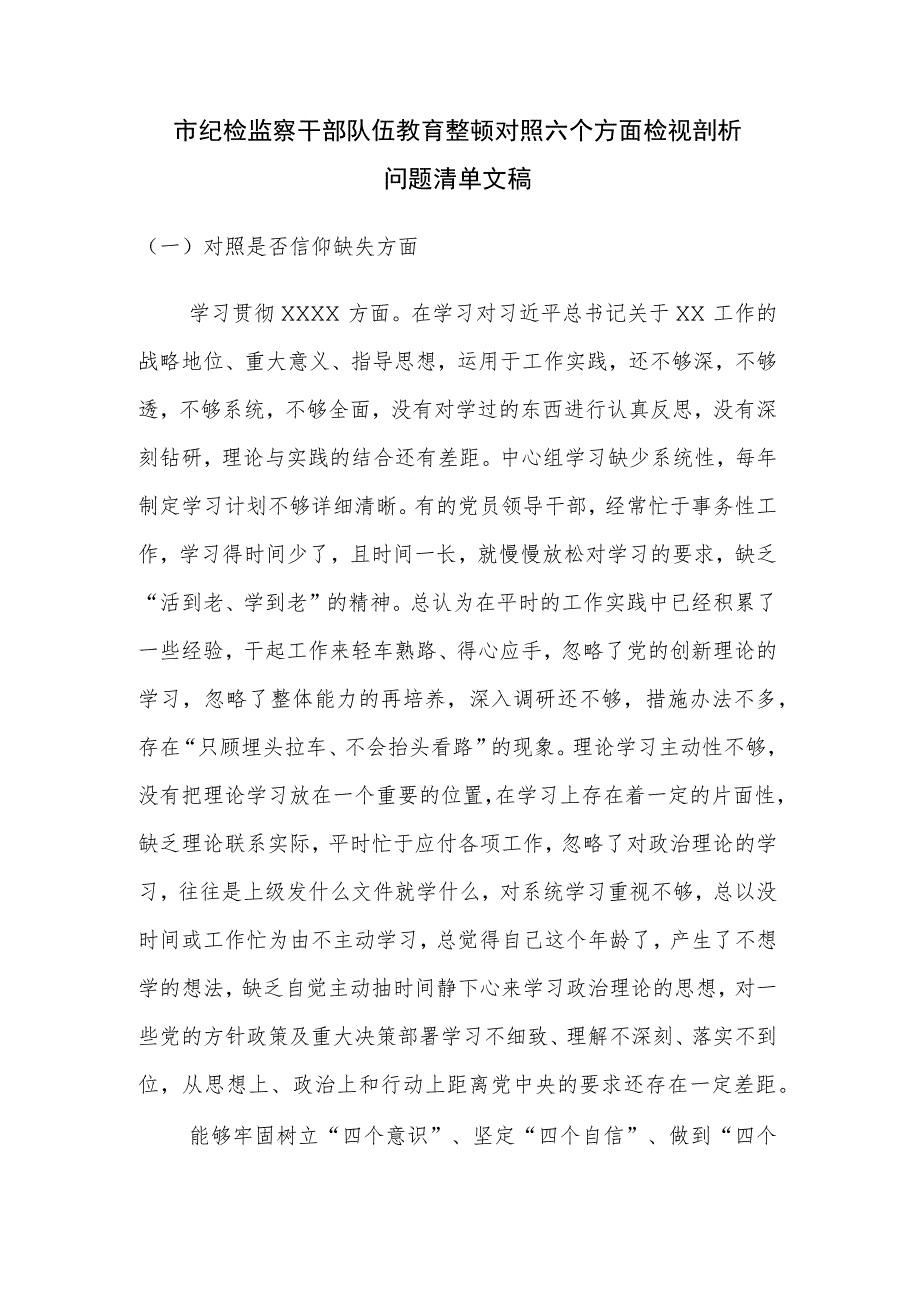 市纪检监察干部队伍教育整顿对照六个方面检视剖析
问题清单文稿
（一）对照是否信仰缺失方面
学习贯彻XXXX方面。在学习对习近平总书记关于XX工作的
战略地位、重大意义、指导思想，运用于工作实践，还不够深，不够
透，不够系统，不够全面，没有对学过的东西进行认真反思，没有深
刻钻研，理论与实践的结合还有差距。中心组学习缺少系统性，每年
制定学习计划不够详细清晰。有的党员领导干部，经常忙于事务性工
作，学习得时间少了，且时间一长，就慢慢放松对学习的要求，缺乏
“活到老、学到老”的精神。总认为在平时的工作实践中已经积累了
一些经验，干起工作来轻车熟路、得心应手，忽略了党的创新理论的
学习，忽略了整体能力的再培养，深入调研还不够，措施办法不多，
存在“只顾埋头拉车、不会抬头看路”的现象。理论学习主动性不够，
没有把理论学习放在一个重要的位置，在学习上存在着一定的片面性，
缺乏理论联系实际，平时忙于应付各项工作，忽略了对政治理论的学
习，往往是上级发什么文件就学什么，对系统学习重视不够，总以没
时间或工作忙为由不主动学习，总觉得自己这个年龄了，产生了不想
学的想法，缺乏自觉主动抽时间静下心来学习政治理论的思想，对一
些党的方针政策及重大决策部署学习不细致、理解不深刻、落实不到
位，从思想上、政治上和行动上距离党中央的要求还存在一定差距。
能够牢固树立“四个意识”、坚定“四个自信”、做到“四个